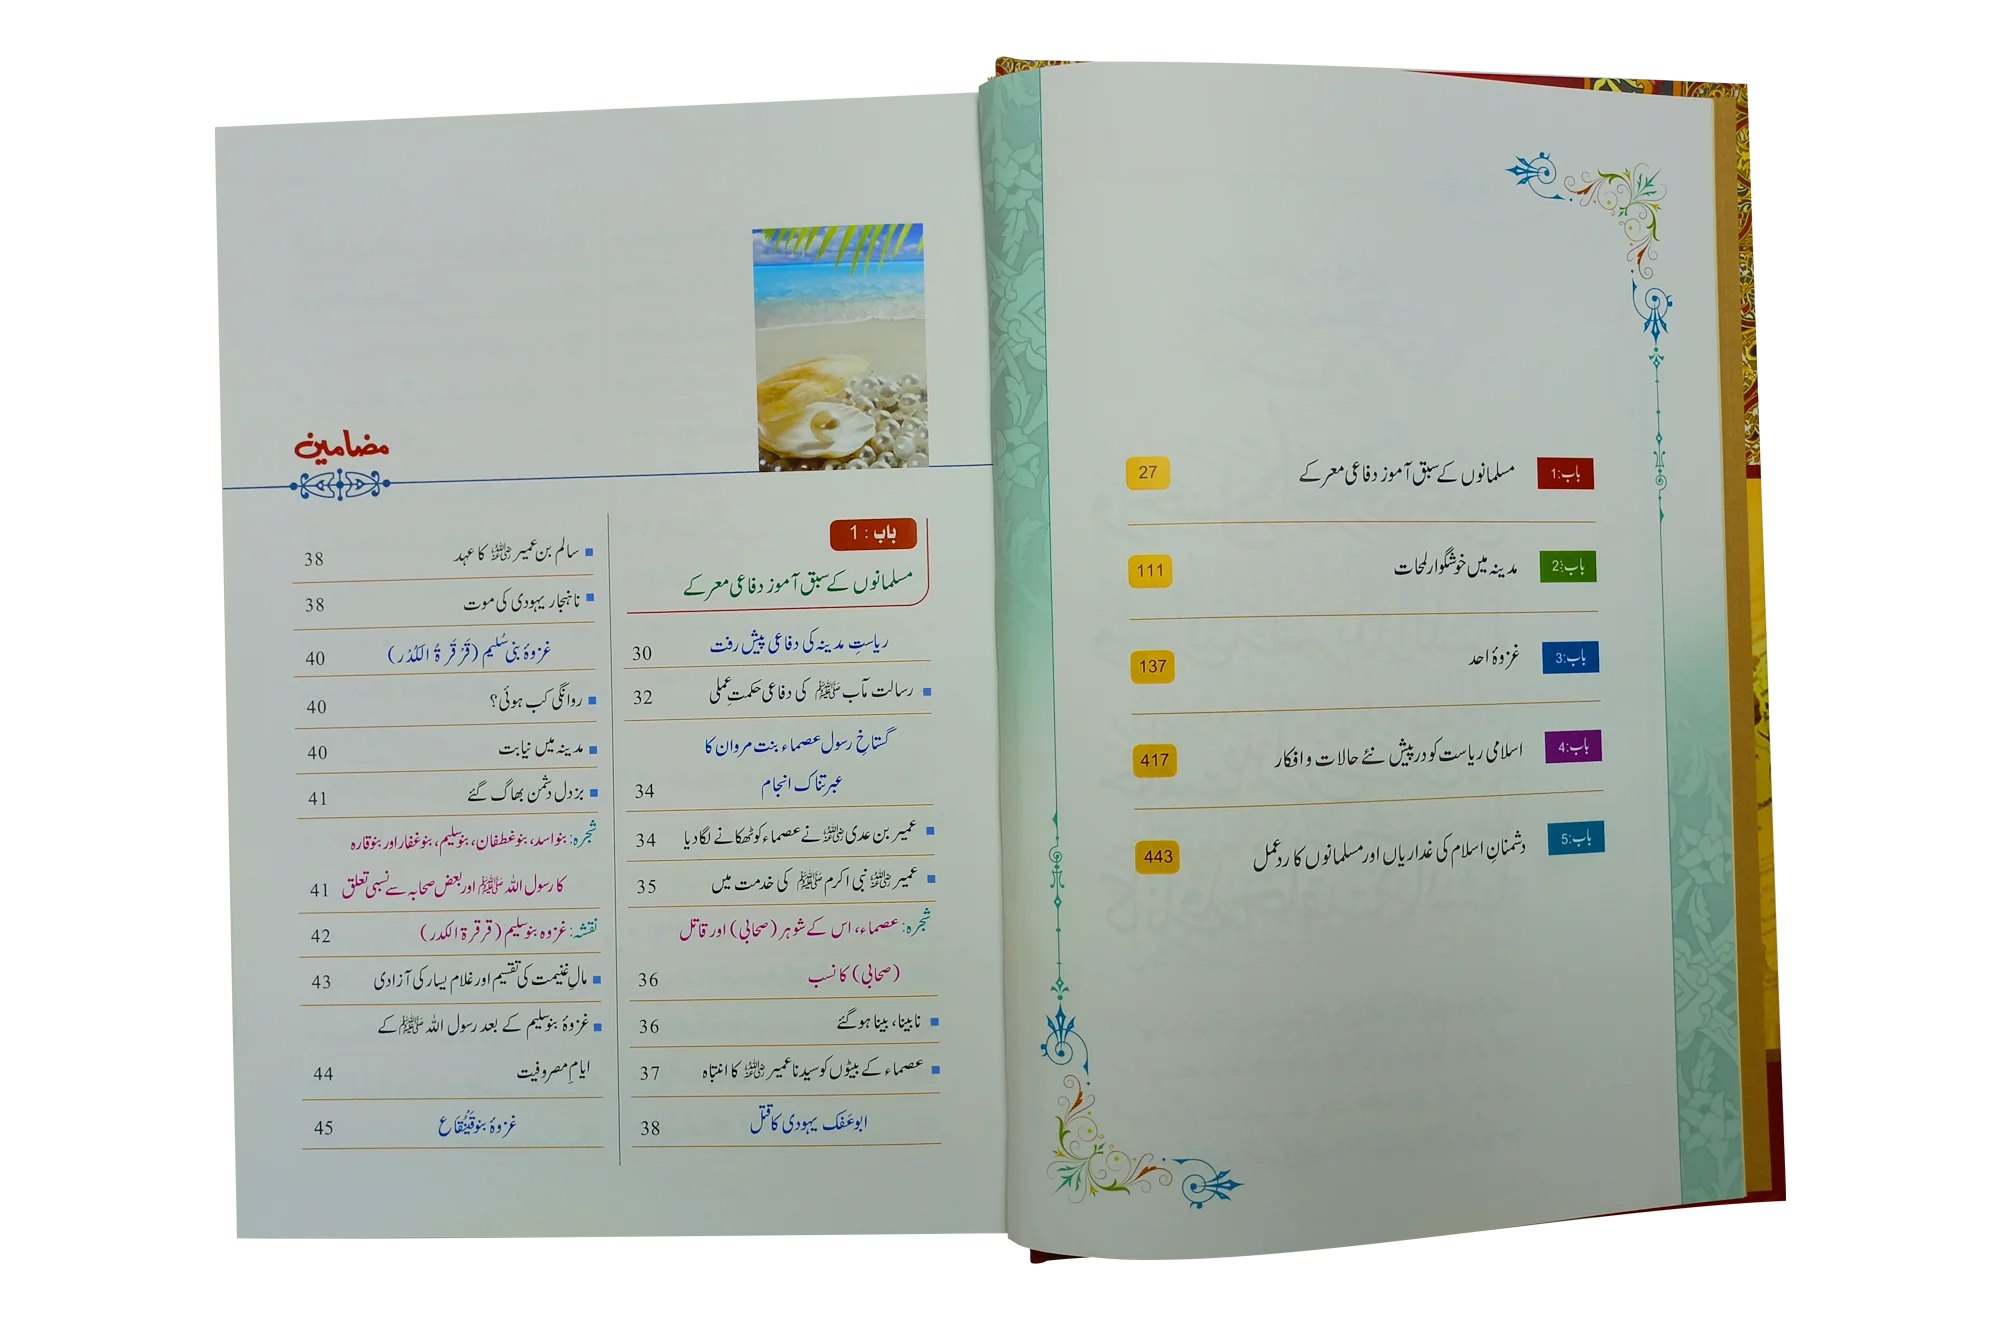 باب:1 مسلمانوں کے سبق آموز دفاعی معرکے 27
باب:2 مدینہ میں خوشگوار لمحات 111
باب:3 غزوۂ احد 137
باب:4 اسلامی ریاست کو درپیش نئے حالات و افکار 417
باب:5 دشمنانِ اسلام کی غداریاں اور مسلمانوں کا ردعمل 443
مضامین
باب : 1
مسلمانوں کے سبق آموز دفاعی معرکے
ریاستِ مدینہ کی دفاعی پیش رفت 30
رسالت مآب ﷺ کی دفاعی حکمتِ عملی 32
گستاخِ رسول عصماء بنت مروان کا
عبرتناک انجام 34
عمیر بن عدی رضی اللہ عنہ نے عصماء کو ٹھکانے لگا دیا 34
عمیر رضی اللہ عنہ نبی اکرم ﷺ کی خدمت میں 35
شجرہ: عصماء، اس کے شوہر (صحابی) اور قاتل
(صحابی) کا نسب 36
نابینا، بینا ہو گئے 36
عصماء کے بیٹوں کو سیدنا عمیر رضی اللہ عنہ کا انتباہ 37
ابو عَفک یہودی کا قتل 38
سالم بن عمیر رضی اللہ عنہ کا عہد 38
ناہنجار یہودی کی موت 38
غزوۂ بنی سُلیم (قَرْقَرَۃُ الْکُدْر) 40
روانگی کب ہوئی؟ 40
مدینہ میں نیابت 40
بزدل دشمن بھاگ گئے 41
شجرہ: بنو اسد، بنو غطفان، بنو سلیم، بنو غفار اور بنو قارہ
کا رسول اللہ ﷺ اور بعض صحابہ سے نسبی تعلق 41
نقشہ: غزوہ بنو سلیم (قرقرۃ الکدر) 42
مالِ غنیمت کی تقسیم اور غلام یسار کی آزادی 43
غزوۂ بنو سلیم کے بعد رسول اللہ ﷺ کے
ایامِ مصروفیت 44
غزوۂ بنو قَیْنُقَاع 45